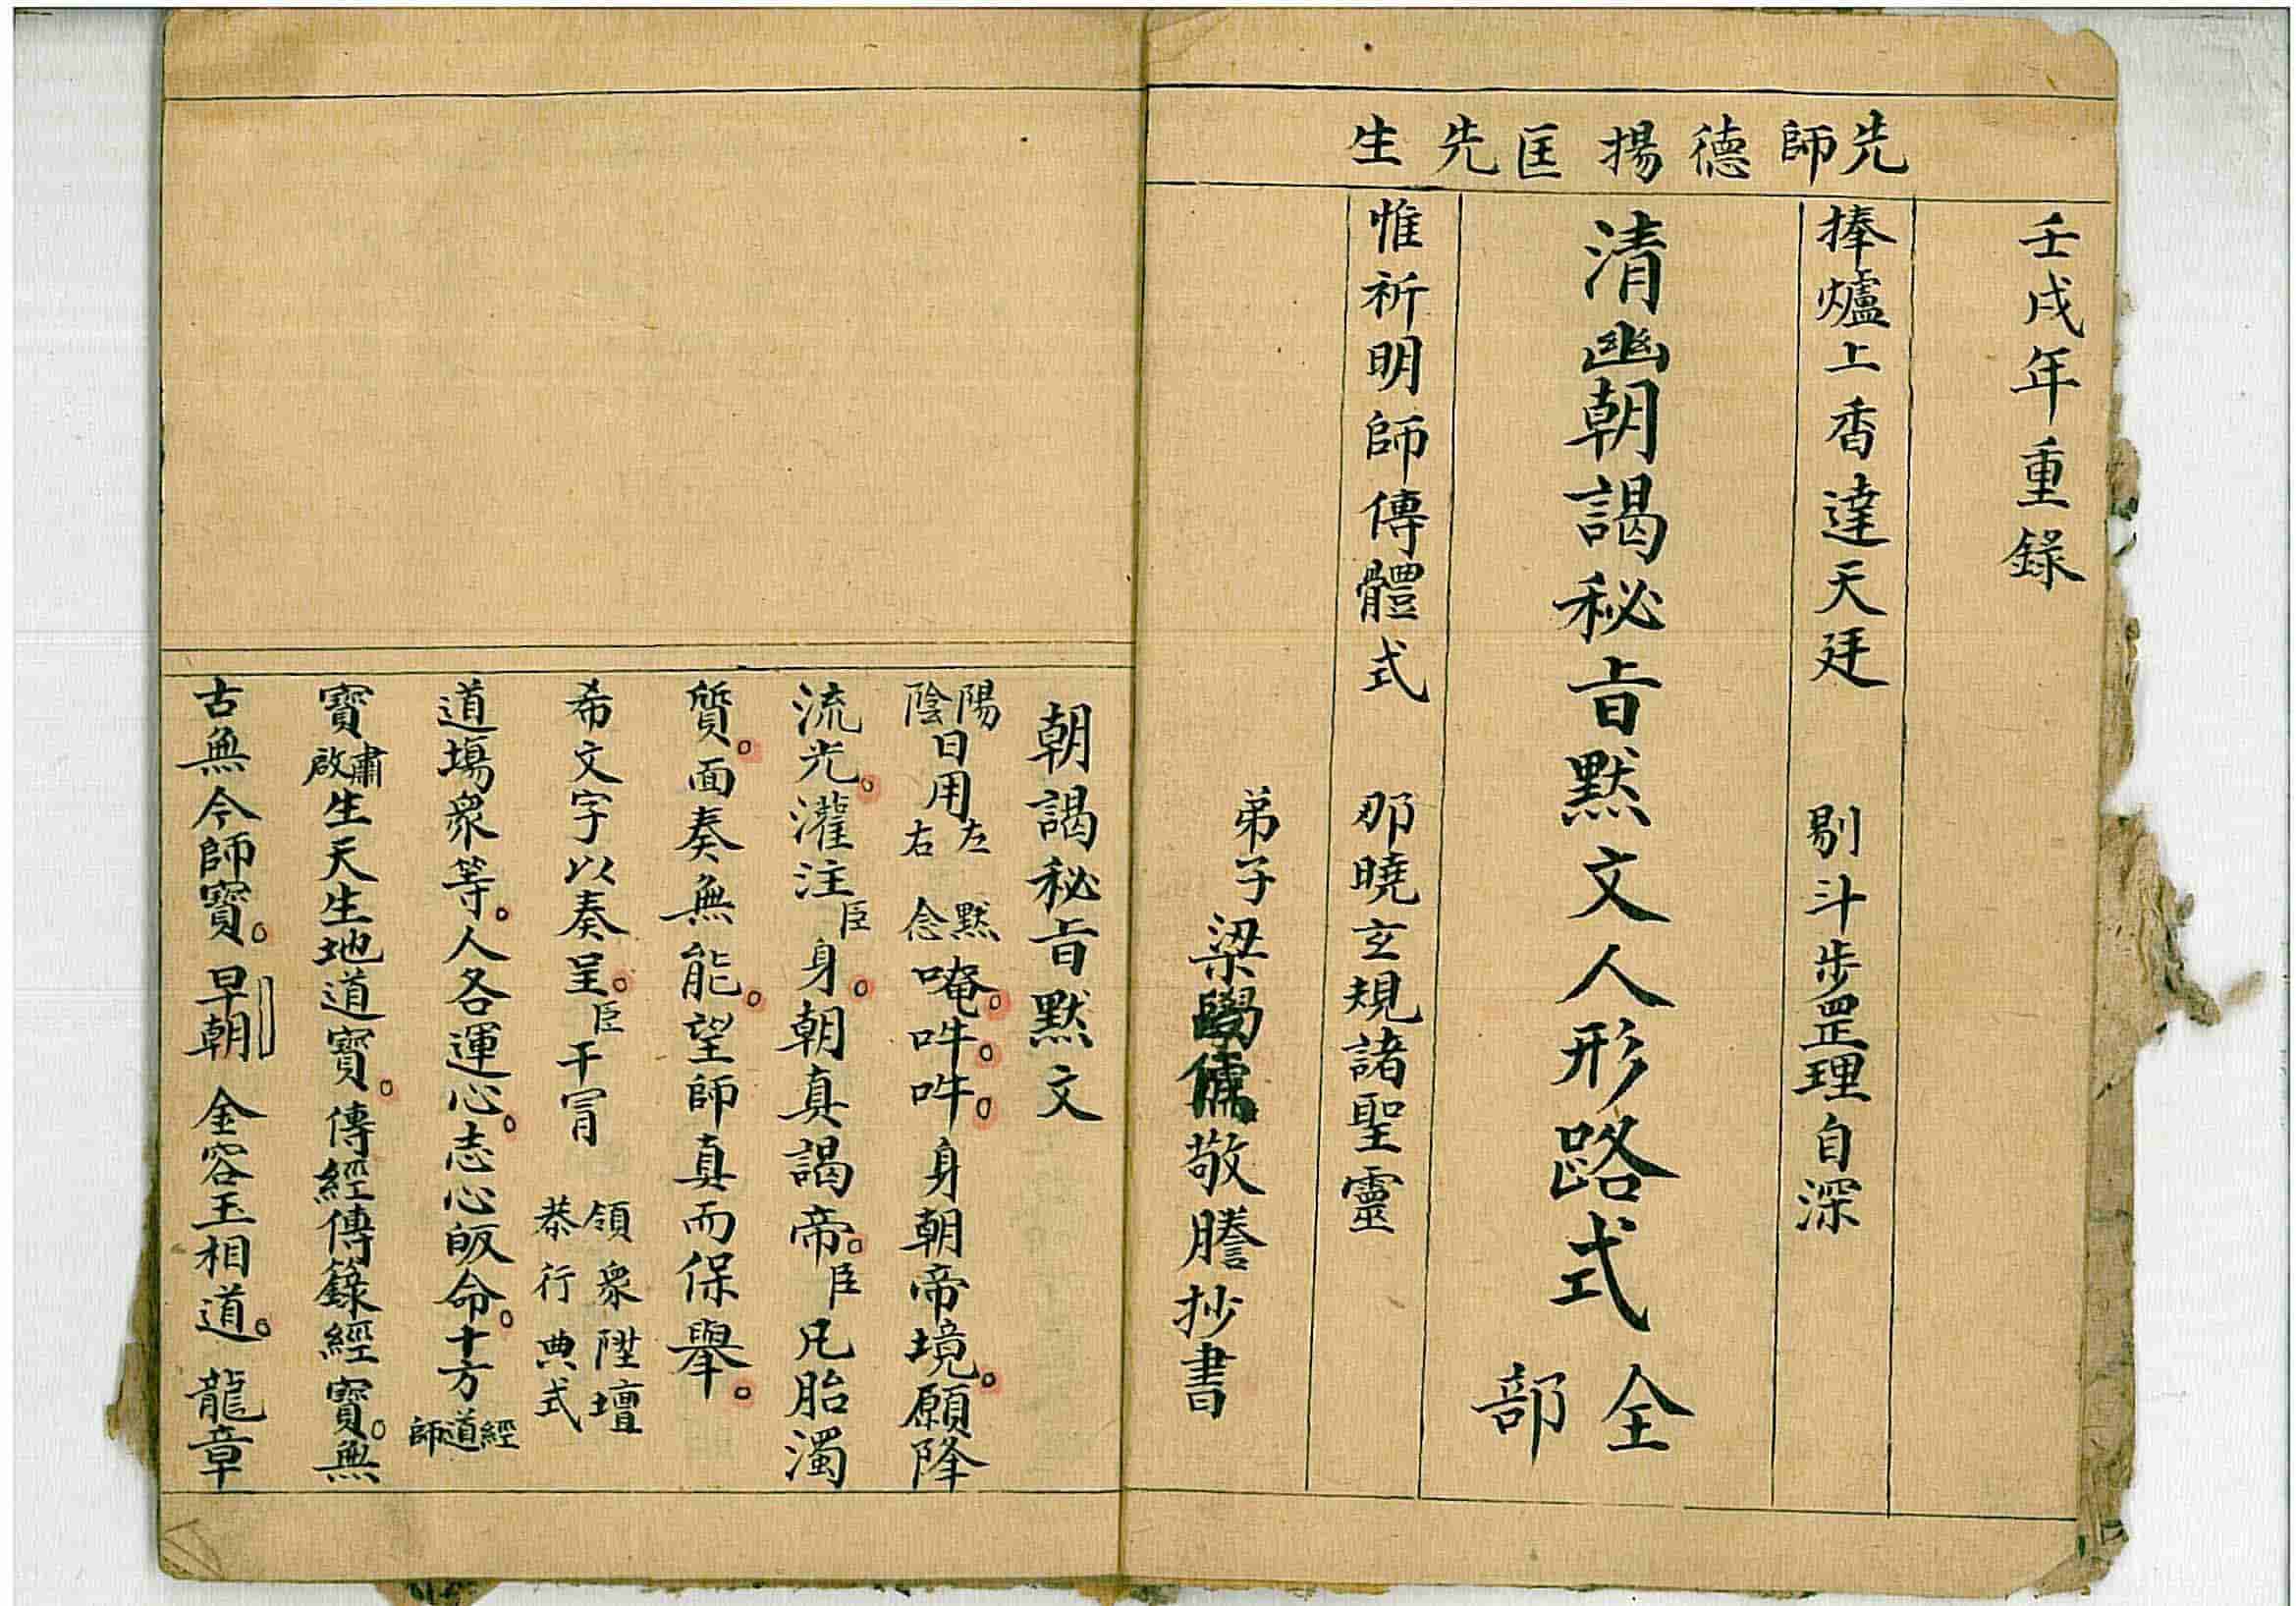 先師德揚匡先生
壬戌年重錄
捧爐上香達天廷 剔斗步罡理自深
清幽朝謁秘旨默文人形路式全部
惟祈明師傳體式 那曉玄規諸聖靈
弟子梁學儒敬謄抄書
朝謁秘旨默文
陽陰日用左右 默念唵。吽。吽。身朝帝境。願降
流光。灌注臣身。朝真謁帝。臣凡胎濁
質。面奏無能。望師真而保舉。
希文字以奏呈。臣干冒 領眾陞壇 恭行典式
道場眾等。人各運心。志心皈命。十方經道師
寶肅啟生天生地道寶。傳經傳籙經寶。無
古無今師寶。早朝 金容玉相道。龍章